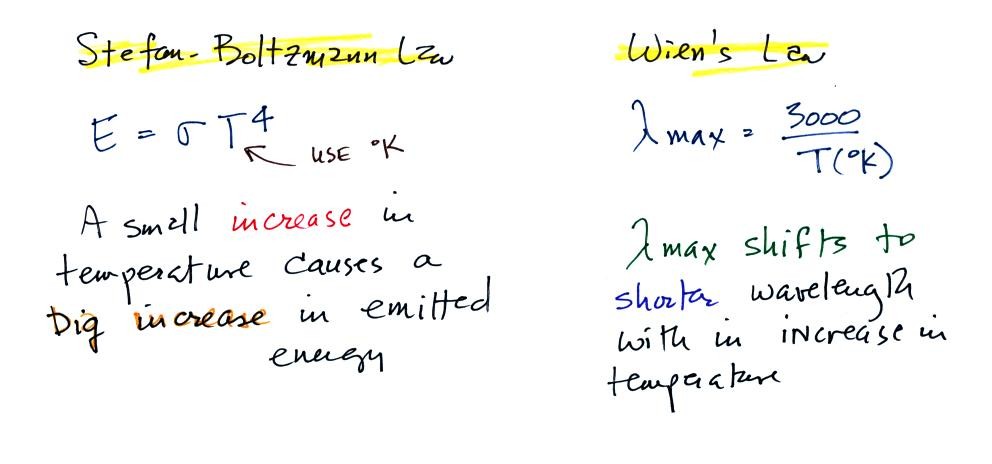 Stefan-Boltzmann Law
E = σ T⁴
USE °K
A small increase in
temperature causes a
big increase in emitted
energy
Wien's Law
λ max = 3000 / T(°K)
λ max shifts to
shorter wavelength
with in increase in
temperature